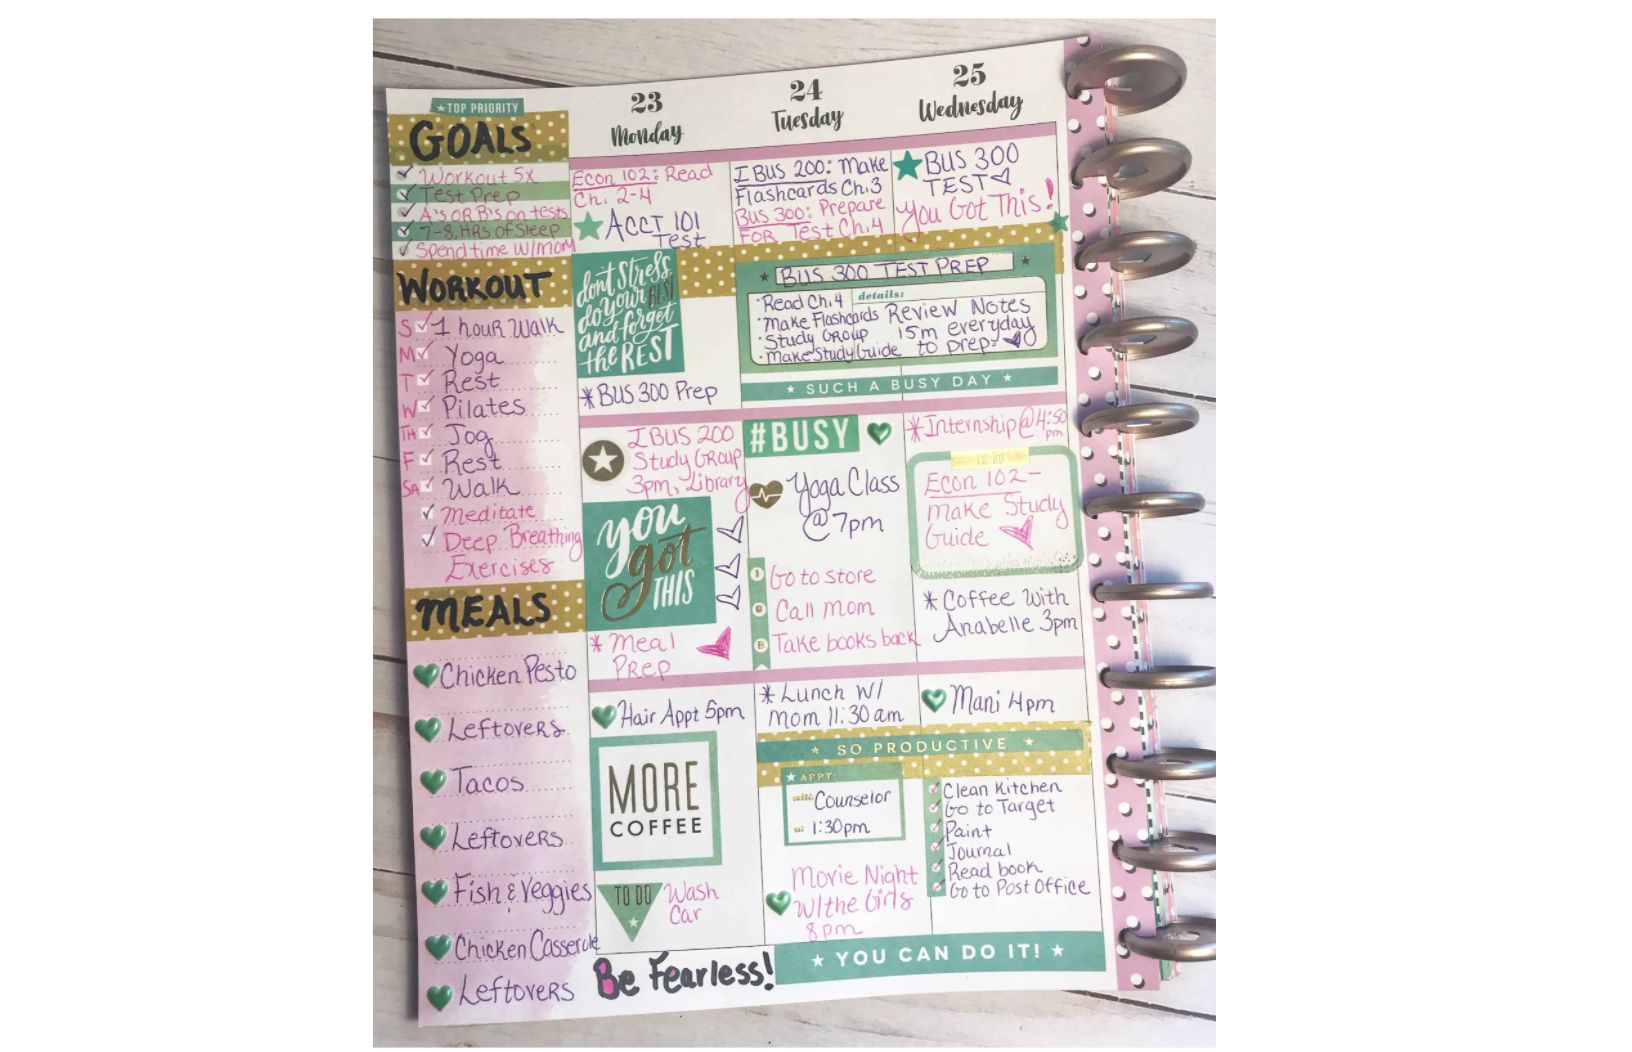 ★TOP PRIORITY
GOALS
Workout 5x
Test Prep
A's OR B's on tests
7-8 HRs of Sleep
Spend time w/mom
WORKOUT
S 1 hour Walk
M Yoga
T Rest
W Pilates
TH Jog
F Rest
SA Walk
Meditate
Deep Breathing
Exercises
MEALS
Chicken Pesto
Leftovers
Tacos
Leftovers
Fish & Veggies
Chicken Casserole
Leftovers
23
Monday
Econ 102: Read
Ch. 2-4
ACCT 101
Test
don't stress,
do your BEST
and forget
the REST
*BUS 300 Prep
IBUS 200
Study Group
3pm, Library
you
got
THIS
*Meal
Prep
Hair Appt 5pm
MORE
COFFEE
TO DO
Wash
Car
Be Fearless!
24
Tuesday
IBUS 200: Make
Flashcards Ch.3
BUS 300: Prepare
FOR Test Ch.4
BUS 300 TEST PREP
·Read Ch.4
·Make Flashcards
·Study Group
·Make Study Guide
details:
Review Notes
15m everyday
to prep
★ SUCH A BUSY DAY ★
#BUSY
Yoga Class
@ 7pm
Go to store
Call mom
Take books back
*Lunch w/
mom 11:30 am
★ SO PRODUCTIVE ★
★ APPT:
with Counselor
at 1:30pm
Movie Night
w/the Girls
8pm
25
Wednesday
BUS 300
TEST
You Got This!
*Internship@4:50
pm
TO DO
Econ 102-
make Study
Guide
*Coffee with
Anabelle 3pm
Mani 4pm
Clean Kitchen
Go to Target
Paint
Journal
Read book
Go to Post Office
★ YOU CAN DO IT! ★